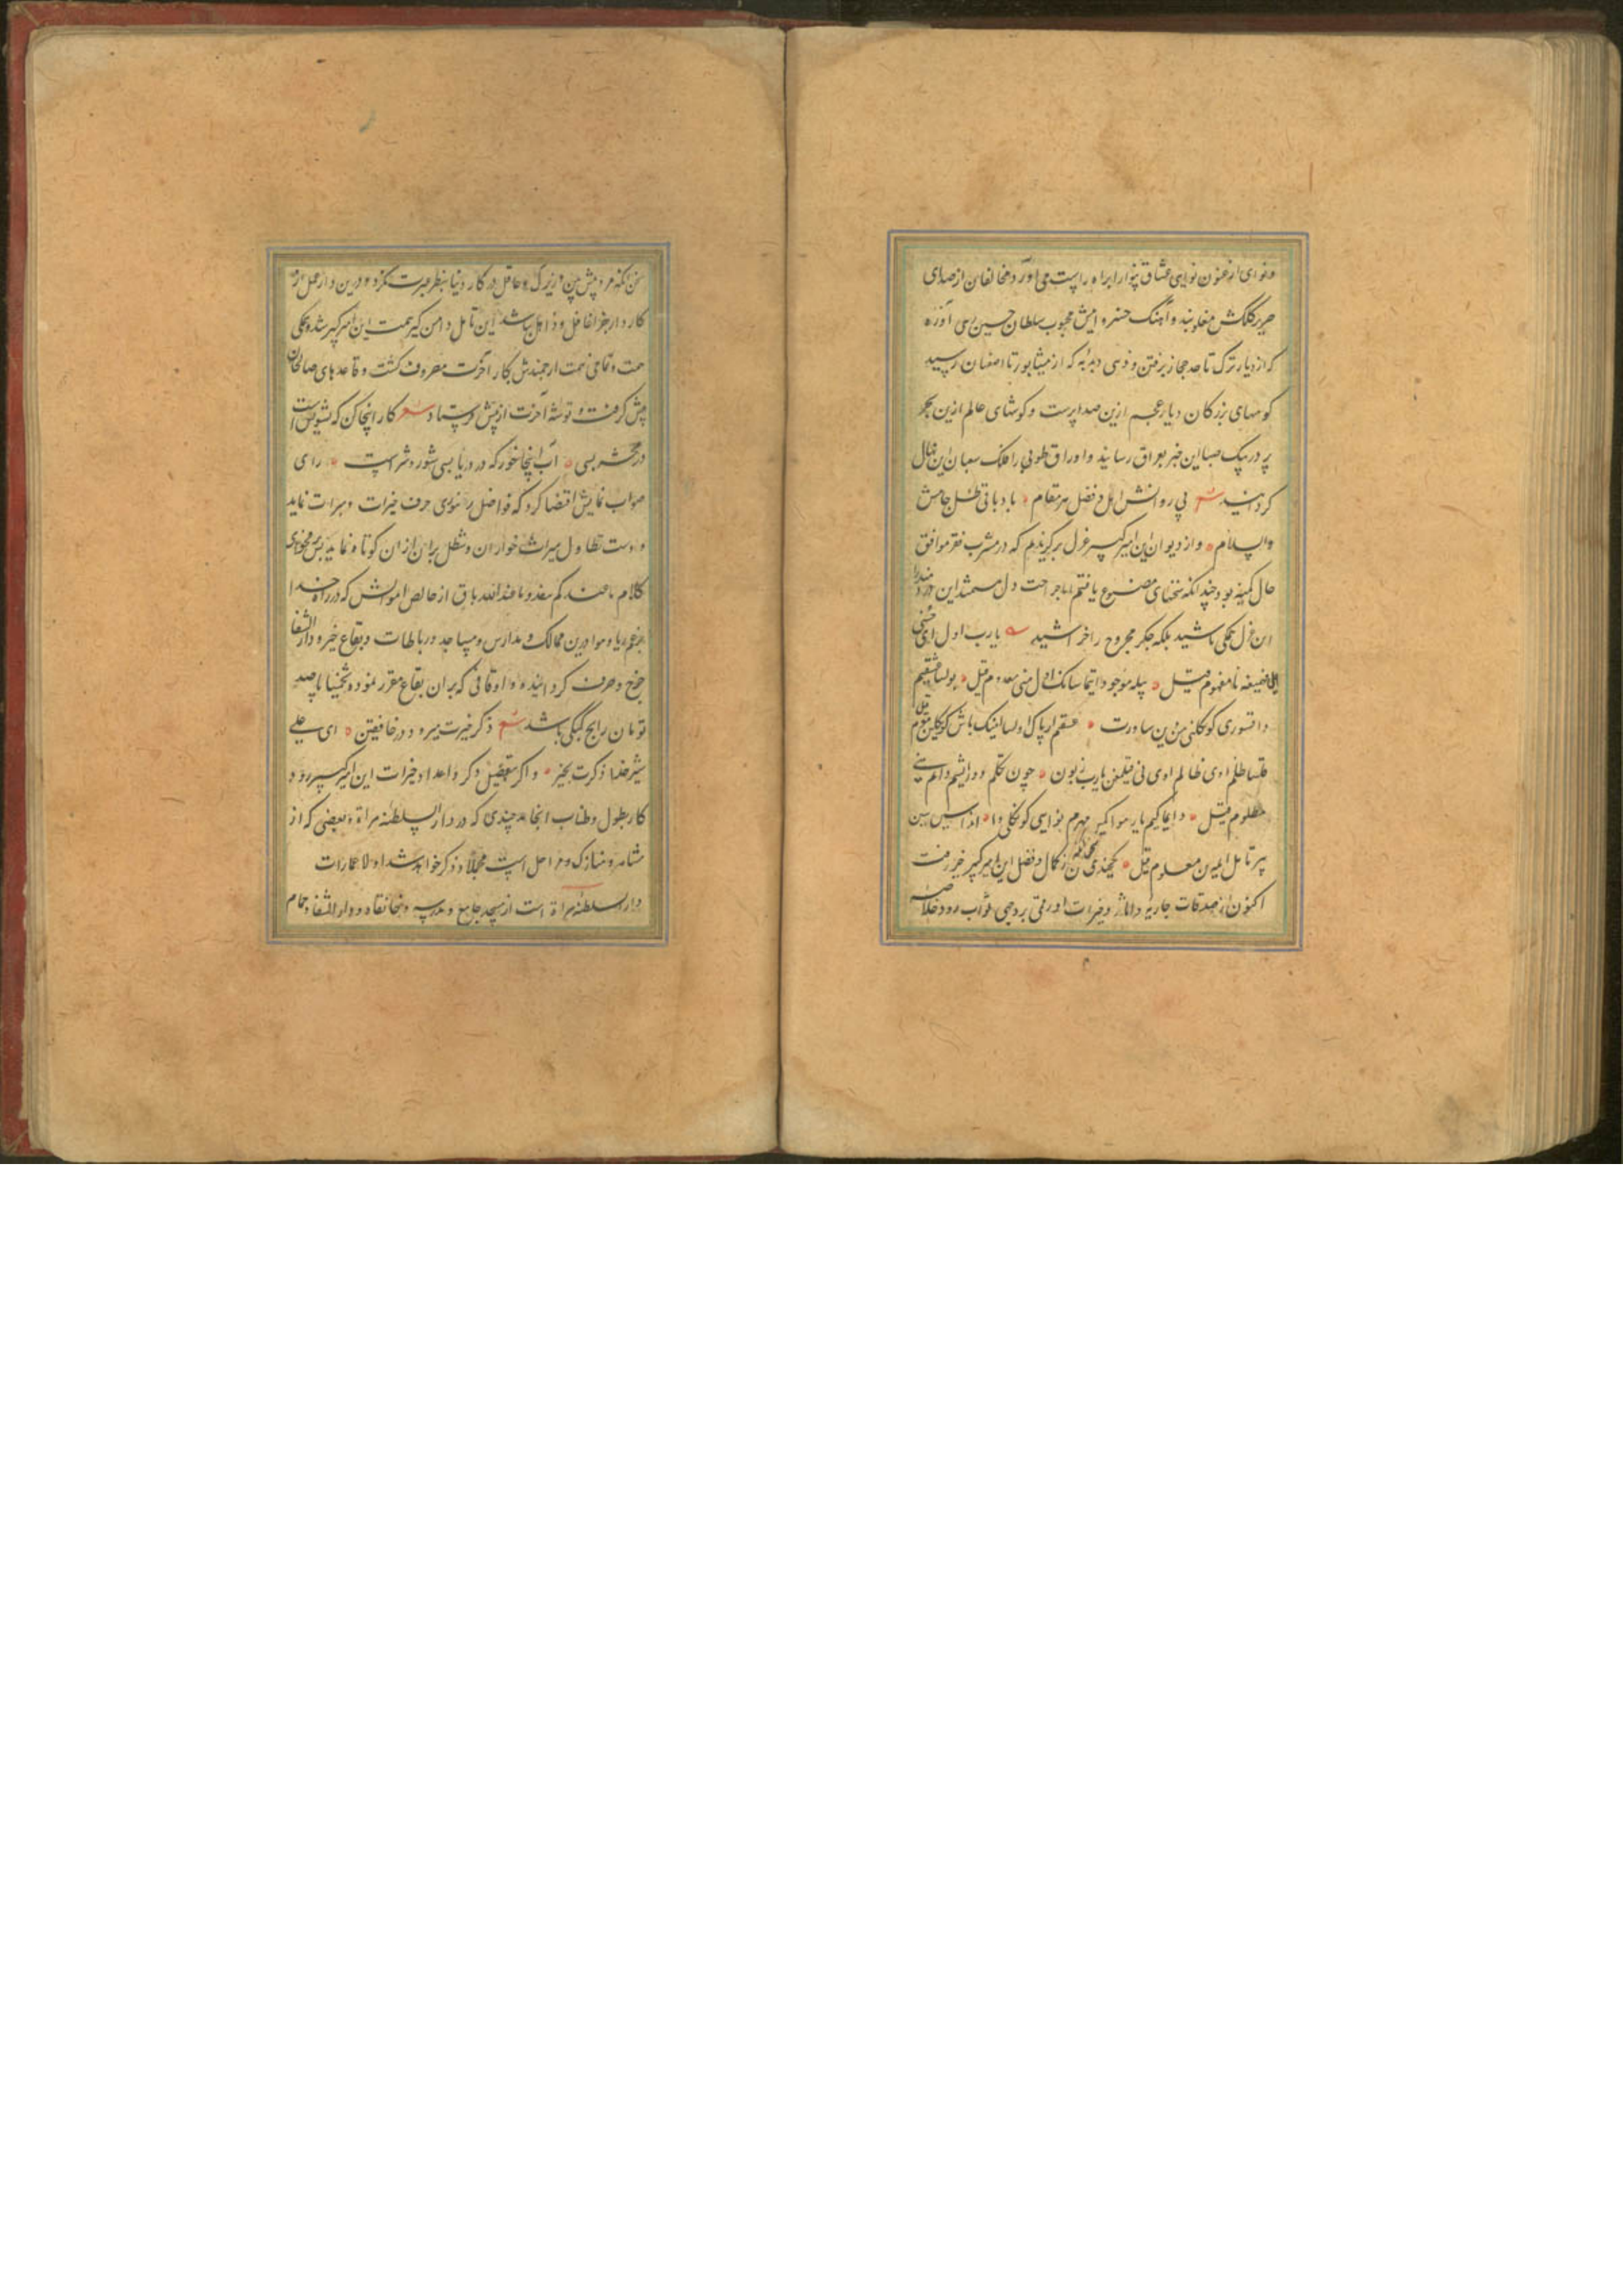 ونوای ارغنون نوایی عشاق بینوا را براه راست می آورد مخالفان از صدای
صریر کلکش مغلوبند و آهنگ خسروانیش محبوب سلطان حسین زهی آوازه
که از دیار ترک تا حد حجاز برفتن و زهی دبدبه که از نیشابور تا اصفهان رسید
کوسهای بزرکان دیار عجم ازین صدا پرست و کوشهای عالم ازین بحر
پر در پیک صبا این خبر بعراق رسانید و اوراق طوبی را فلک سعبان این نهال
کردانید شعر بی روانش اهل فضل هر مقام باد باقی ظل جامش
والسلام و از دیوان این امیر کبیر غزل برگزیدم که در مشرب فقر موافق
حال کمینه بود چندانکه سخنهای مصنوع یافتم اما جراحت دل مستمند این دردمند را
این غزل همکی باشید بلکه جکر مجروح را خراشید یا رب اول ای حسنی
ایلا ضعیفه نامفهوم قیل بیله موجود ایتماسانک اول منی معدوم قیل بولسا عشقیم
دا قسوری کوکلنی مزین ساورت عشقم ار پاک اولسا اینک باش کوکلین موم قیل
قلسا ظلم اوی ظالم اوی نی قیلغن یا رب زبون چون تکلم دور ایشم دایم منی
مظلوم قیل دایما کیم یار مو اکیر مهرم نوایی کونکلی دا اندا سین سین
بیر تامل ایلبین معلوم قیل یکچندی سخن از کمال و فضل این امیر کبیر خبر رفت
اکنون از صدقات جاریه و آثار و خیرات او رمقی بروجی ثواب رود خلاصه
سخن آنکه مرد پیش بین و زیرک و عاقل در کار دنیا بنظر عبرت نکرد و درین دار عمل از
کار دار جزا غافل و ذاهل نباشد این تامل دامن کیر همت این امیر کبیر شده همکی
همت و تمامی نهمت ارجمندش بکار آخرت مصروف کشت و قاعدهای صالحان
پیش کرفت و توشه آخرت از پیش فرستاد شعر کار اینجا کن که تشویش است
در محشر بسی آب اینجا خور که در دریا بسی شور و شرست رای
صواب نمایش اقتضا کرد که فواضل دنیوی صرف خیرات و مبرات نماید
و دست تطاول میراث خواران و مبطل بران از ان کوتاه نماید بر فحوای
کلام ما عندکم ینفد و ما عند الله باق از خالص اموالش که در راه خدا
برغم ریا و هوا درین ممالک و مدارس و مساجد و رباطات و بقاع خیر و دار الشفا
خرج و صرف کردانیده و اوقافی که بران بقاع مقرر نموده تخمینا پانصد
تومان رایج کپکی باشد شعر ذکر خیرت میرود در خافقین ای علی
شیر خدا ذکرت بخیر و اکر بتفصیل ذکر و اعداد خیرات این امیر کبیر رود
کار بطول و طناب انجامد چندی که در دار السلطنه هراة و بعضی که از
مشاهر و منازل و مراحل است مجملا ذکر خواهد شد اولا عمارات
دار السلطنه هراة است از مسجد جامع و مدرسه و خانقاه و دار الشفا و حمام